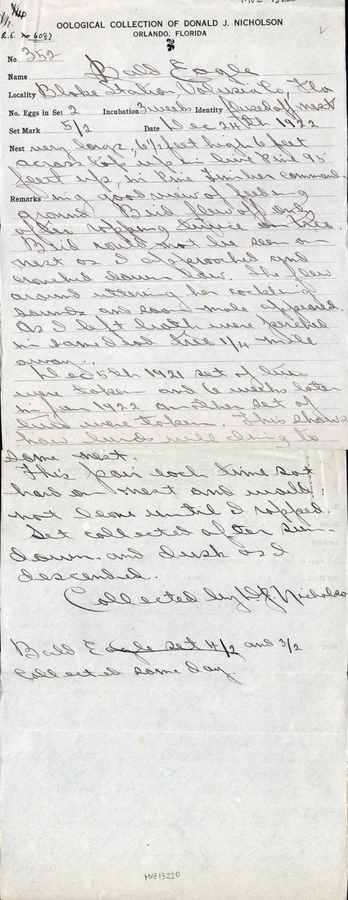 1/1
R.E. no 6087
OOLOGICAL COLLECTION OF DONALD J. NICHOLSON
ORLANDO, FLORIDA
No. 352
Name Bald Eagle
Locality Blake Station Volusia Co, Fla
No. Eggs in Set 2 Incubation 3 weeks Identity flused off nest
Set Mark 5/2 Date Dec 24th 1922
Nest very large, 6 1/2 feet high 6 feet
across top up in live Pine 95
feet up, in Pine timber command-
Remarks ing good view of feeding
ground. Bird flew off only
after rapping twice on tree.
Bird could not be seen on
nest as I approached and
crouched down low. She flew
around uttering her cackling
sounds and soon male appeared.
As I left both were perched
in same dead tree 1/4 mile
away.
Dec 5th 1921 set of two
were taken and 6 weeks later
in Jan 1922 another set of
two were taken. This shows
how birds will cling to
same nest.
This pair each time sat
hard on nest and would
not leave until I rapped.
Set collected after sun-
down and dusk as I
descended.
Collected by D.J. Nicholson
Bald Eagle set 4/2 and 3/2
collected same day.
MVZ 13220